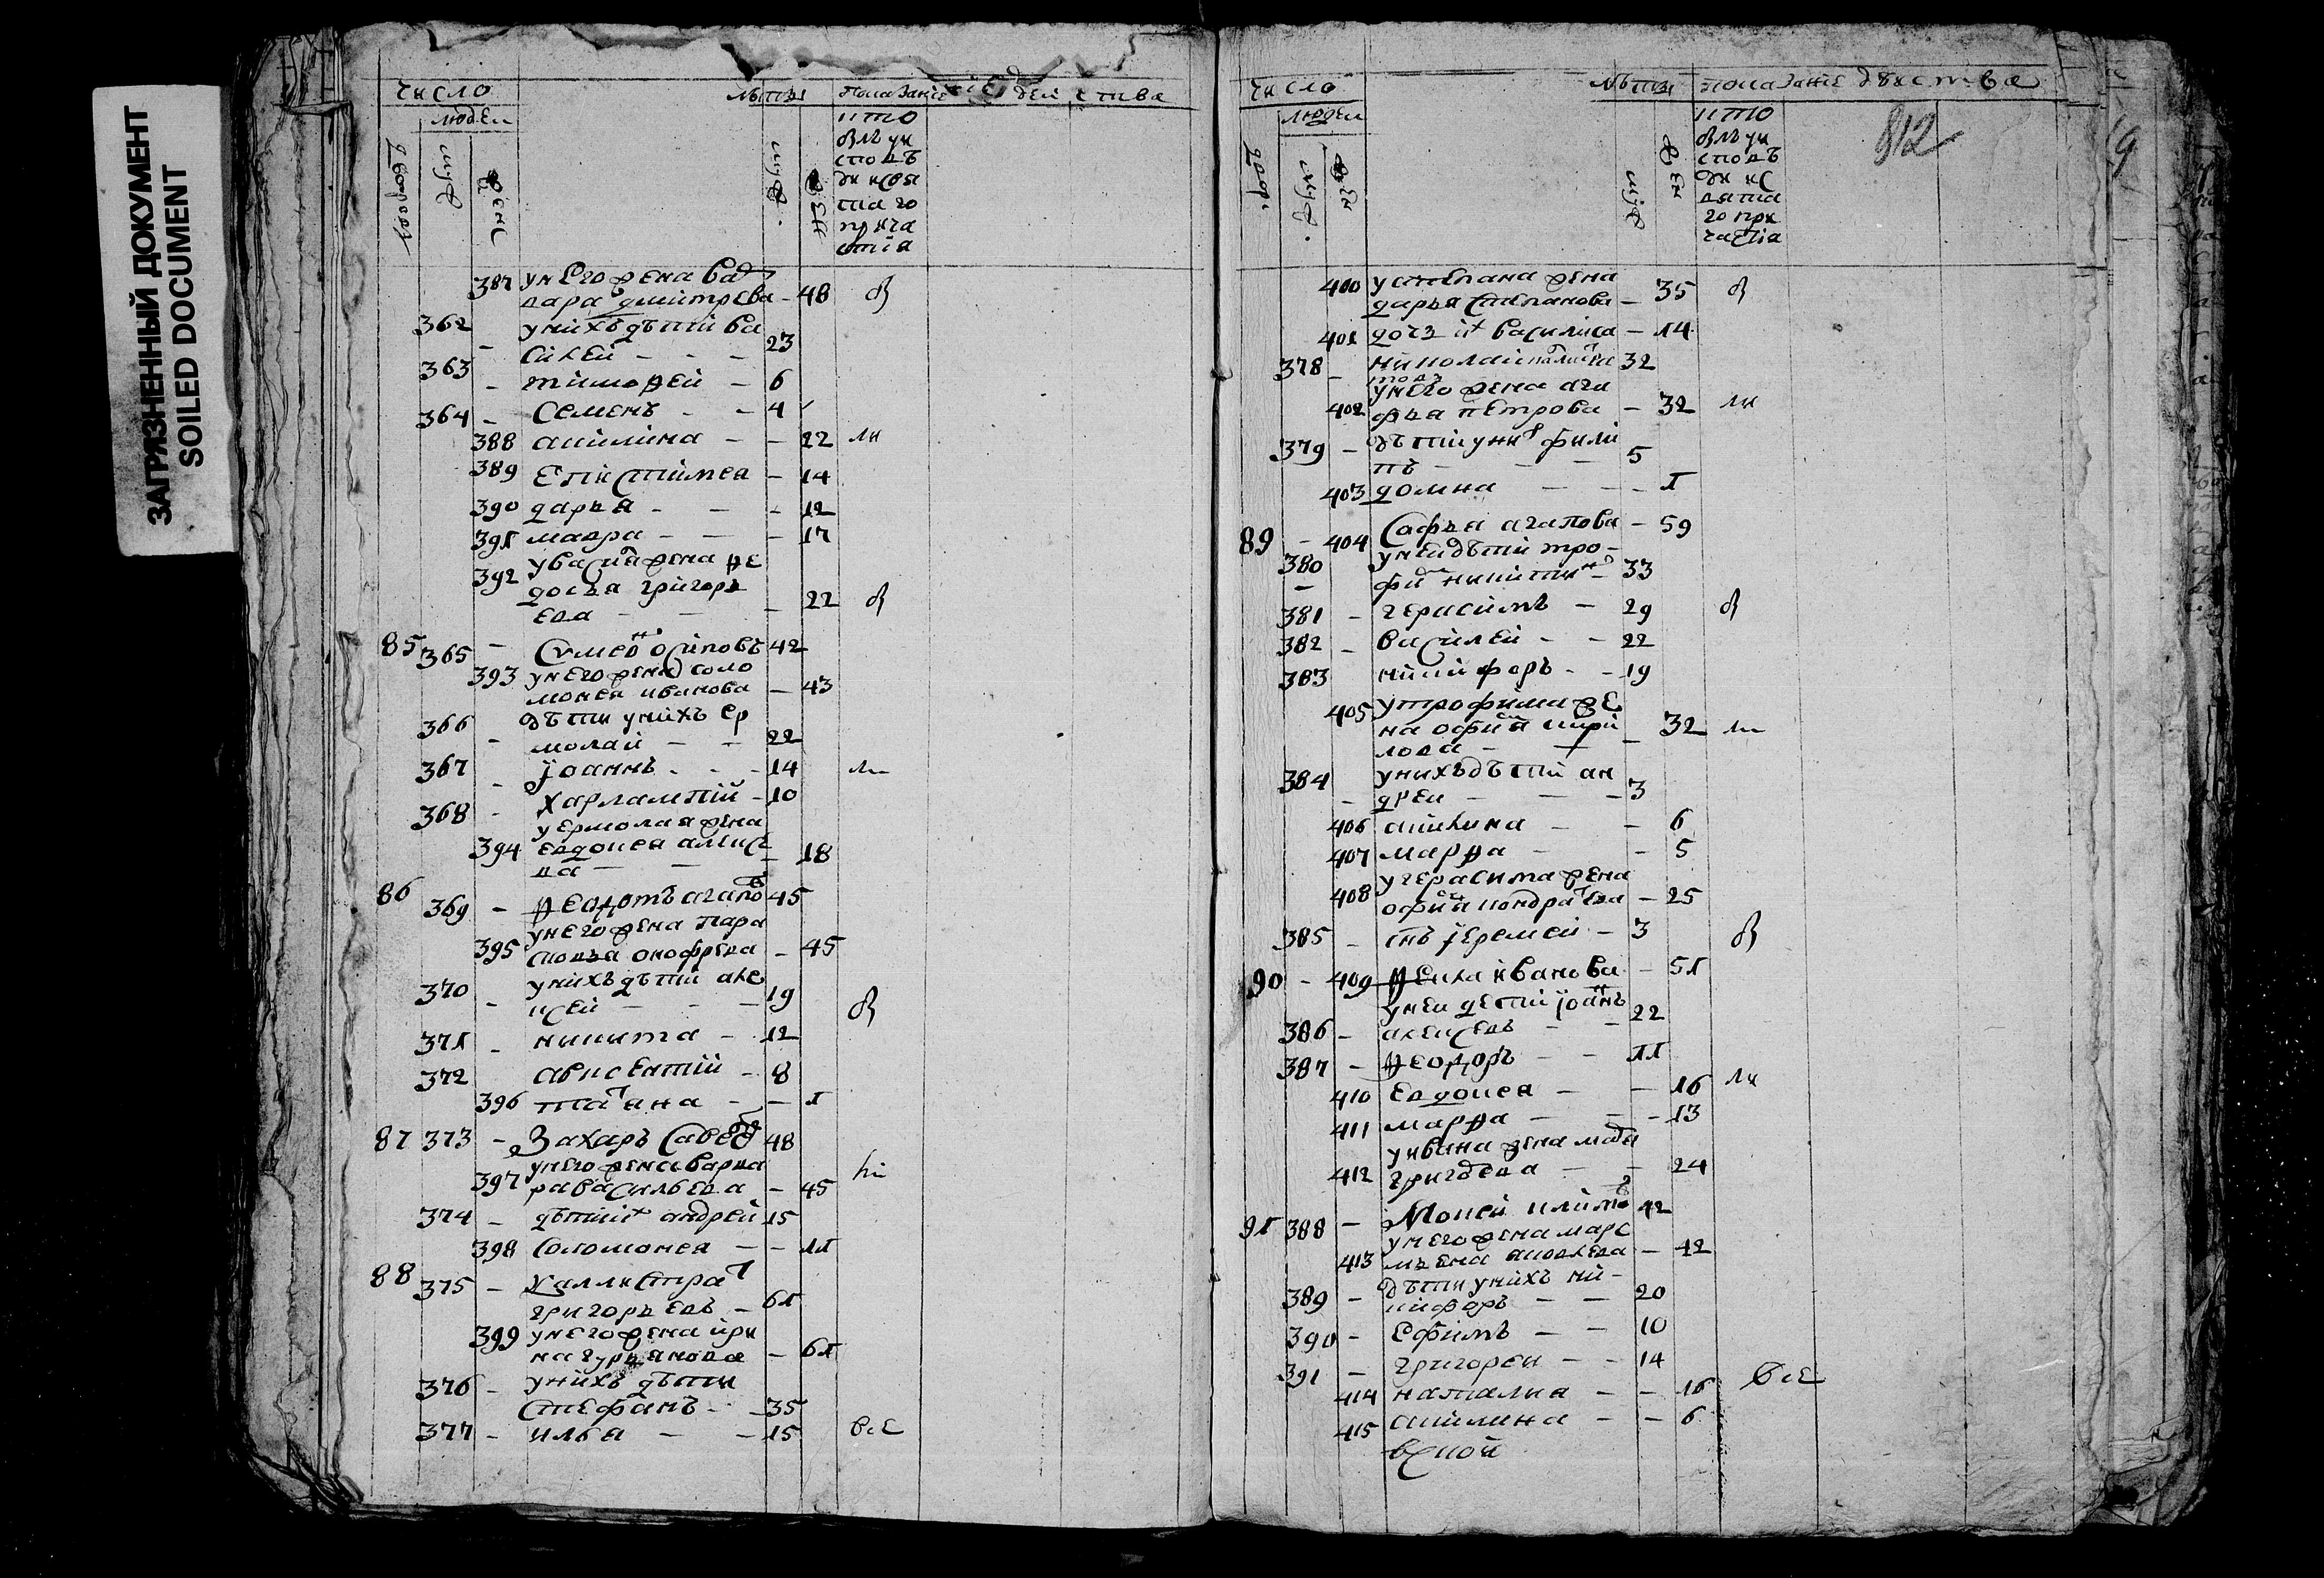 ЗАГРЯЗНЕННЫЙ ДОКУМЕНТ
SOILED DOCUMENT
число
людей
лѣты
показаніе действа
дворовъ
муж
женс
муж
жен
кто
былъ у и
сповѣ
ди и свя
таго
прича
стія
387 у него жена ва
вара дмитрева - 48 б
362 - у нихъ дѣти ва
силей - - - 23
363 - тимофей - 6
364 - семенъ - - 4
388 акилина - - 22 ли
389 епистимея - 14
390 дарья - - - 12
391 мавра - - - 17
392 у васия жена фе
досья григорь
ева - - - 22 б
85 365 - сѵмеонъ осиповъ 42
393 у него жена соло
монея иванова - 43
366 - дѣти у нихъ ер
молай - - 22
367 - іоаннъ - - - 14 ли
368 - харлампій - 10
у ермолая жена
394 евдокея алекс
ва - - - 18
86 369 - феодотъ агапов 45
у него жена пара
395 сковья онофрева - 45
370 - у нихъ дѣти але
ксей - - - 19 б
371 - никита - 12
372 авксентій - 8
396 татяна - - 1
87 373 - Захаръ савел 48
397 у него жена варва
ра васильева - 45
374 - дѣти их андрей 15
398 соломонея - - 11
88 375 - каллистрат
григорьевъ - 61
399 у него жена ири
на гурьянова - 61
376 - у нихъ дѣти
стефанъ - - 35
377 - илья - - 15 все
число
людей
лѣты
показаніе действа
двор.
муж.
жен
муж
жен
кто
былъ у и
сповѣ
ди и с
вята
го при
частіа
812
400 у степана жена
дарья степанова - 35 б
401 дочь их василиса - 14
378 - николай 32
402 у него жена ага
фья петрова - 32 ли
379 - дѣти у них фили
пъ - - - 5
403 домна - - - 1
89 - 404 софья агапова - 59
380 - у ней дѣти тро-
фим никитин - 33
381 - герасимъ - 29 б
382 - василей - - 22
383 никифоръ - - 19
405 у трофима же
на офимия кири
лова - - 32 ли
384 - у нихъ дѣти ан
дрей - - - 3
406 акилина - - 6
407 марфа - - 5
408 у герасима жена
офимия кондратева - 25
385 - снъ іеремей - 3 б
90 - 409 фекла иванова - 51
386 - у ней дети іоаннъ
алексевъ - - 22
387 - феодоръ - - 11
410 евдокея - - 16 ли
411 марфа - - - 13
у ивана жена
412 григорева - - 24
91 388 - Мокей климов 42
у него жена марс
413 мьена яковлева - 42
389 - дѣти у нихъ ни-
кифоръ - - 20
390 - ефимъ - - 10
391 - григореи - - 14
414 наталиа - - 16 все
415 акилина - - 6